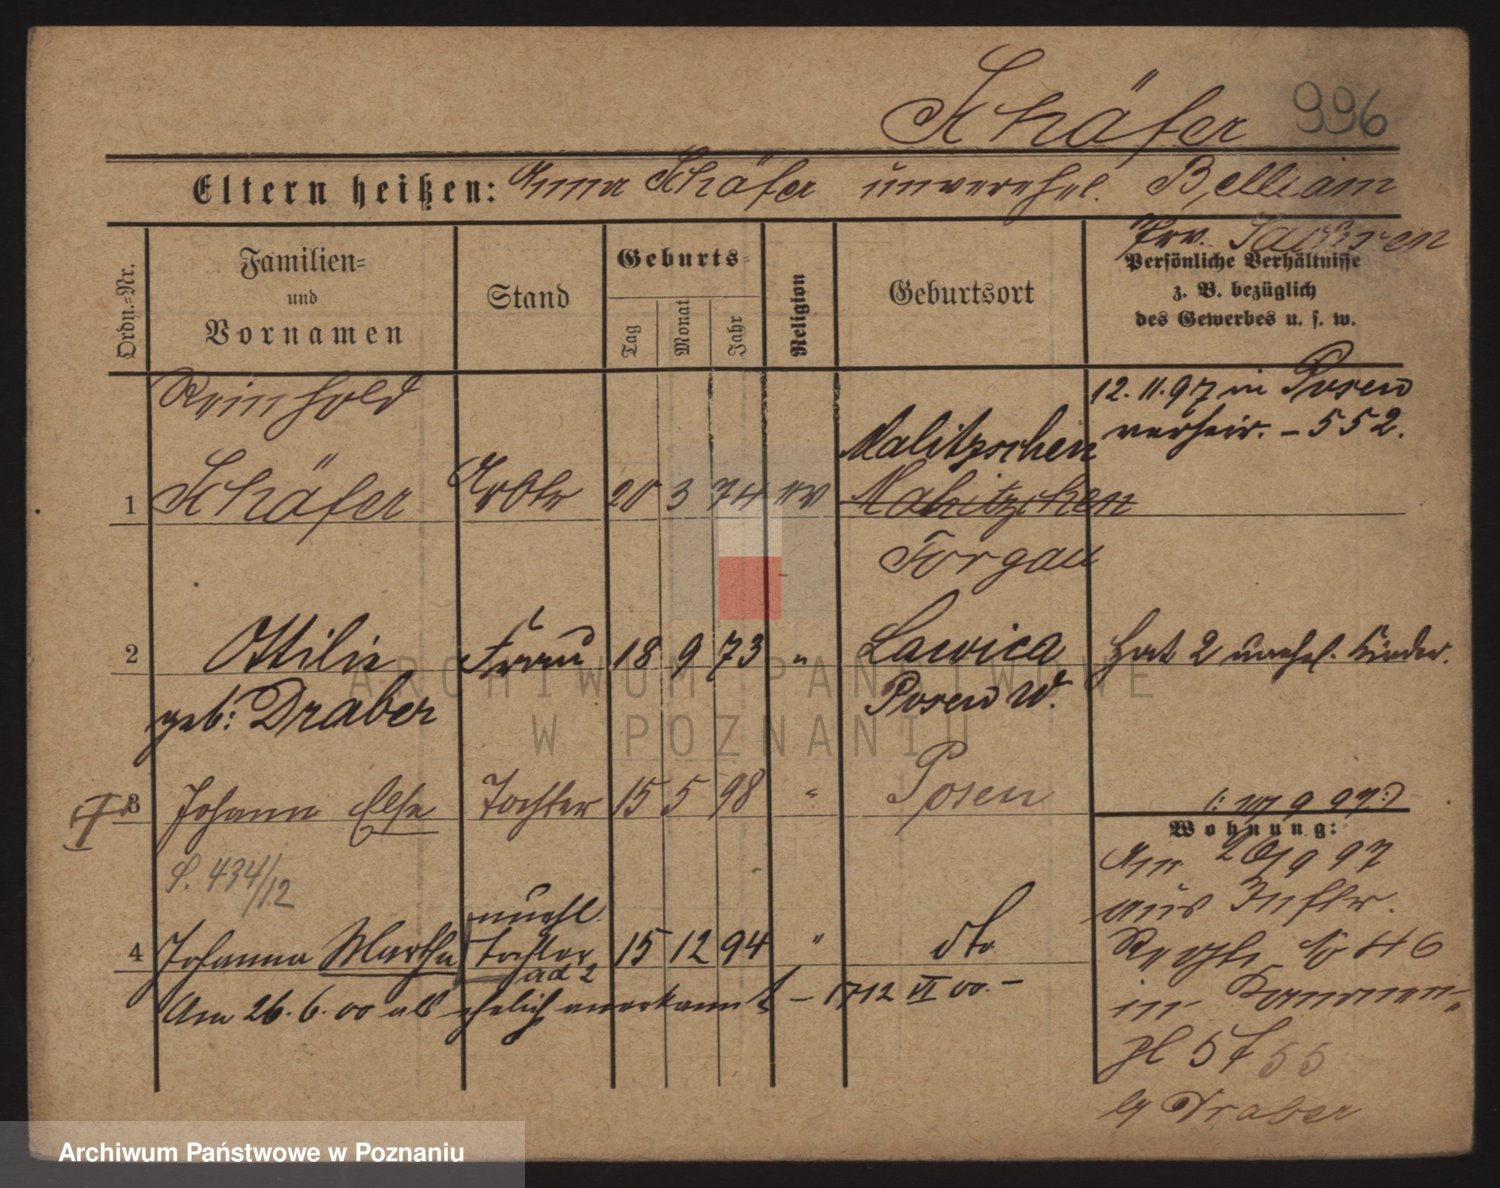 Schäfer 996
Eltern heißen: Anna Schäfer unverehel. Belliain
Prv. Sachsen
Ordn.-Nr.
Familien-
und
Vornamen
Stand
Geburts-
Tag
Monat
Jahr
Religion
Geburtsort
Persönliche Verhältnisse
z. B. bezüglich
des Gewerbes u. s. w.
Reinhold
12.11.97 in Posen
verheir. – 552.
Malitzschen
1 Schäfer Arbtr 20 3 74 ev Malitzschen
Torgau
2 Ottilie Frau 18 9 73 " Lawica Hat 2 unehel. Kinder.
geb: Draber Posen W.
3 Johann Else Tochter 15 5 98 " Posen
Wohnung:
An 20/9 97
S. 434/12
aus Inftr.
unehl.
4 Johanna Martha Tochter 15 12 94 " dto
ad 2
Regt. No 46
Am 26.6.00 als ehelich anerkannt – 1712 VI 00. –
in Kanonen-
pl 5
b/ Draber
ARCHIWUM PAŃSTWOWE
W POZNANIU
Archiwum Państwowe w Poznaniu